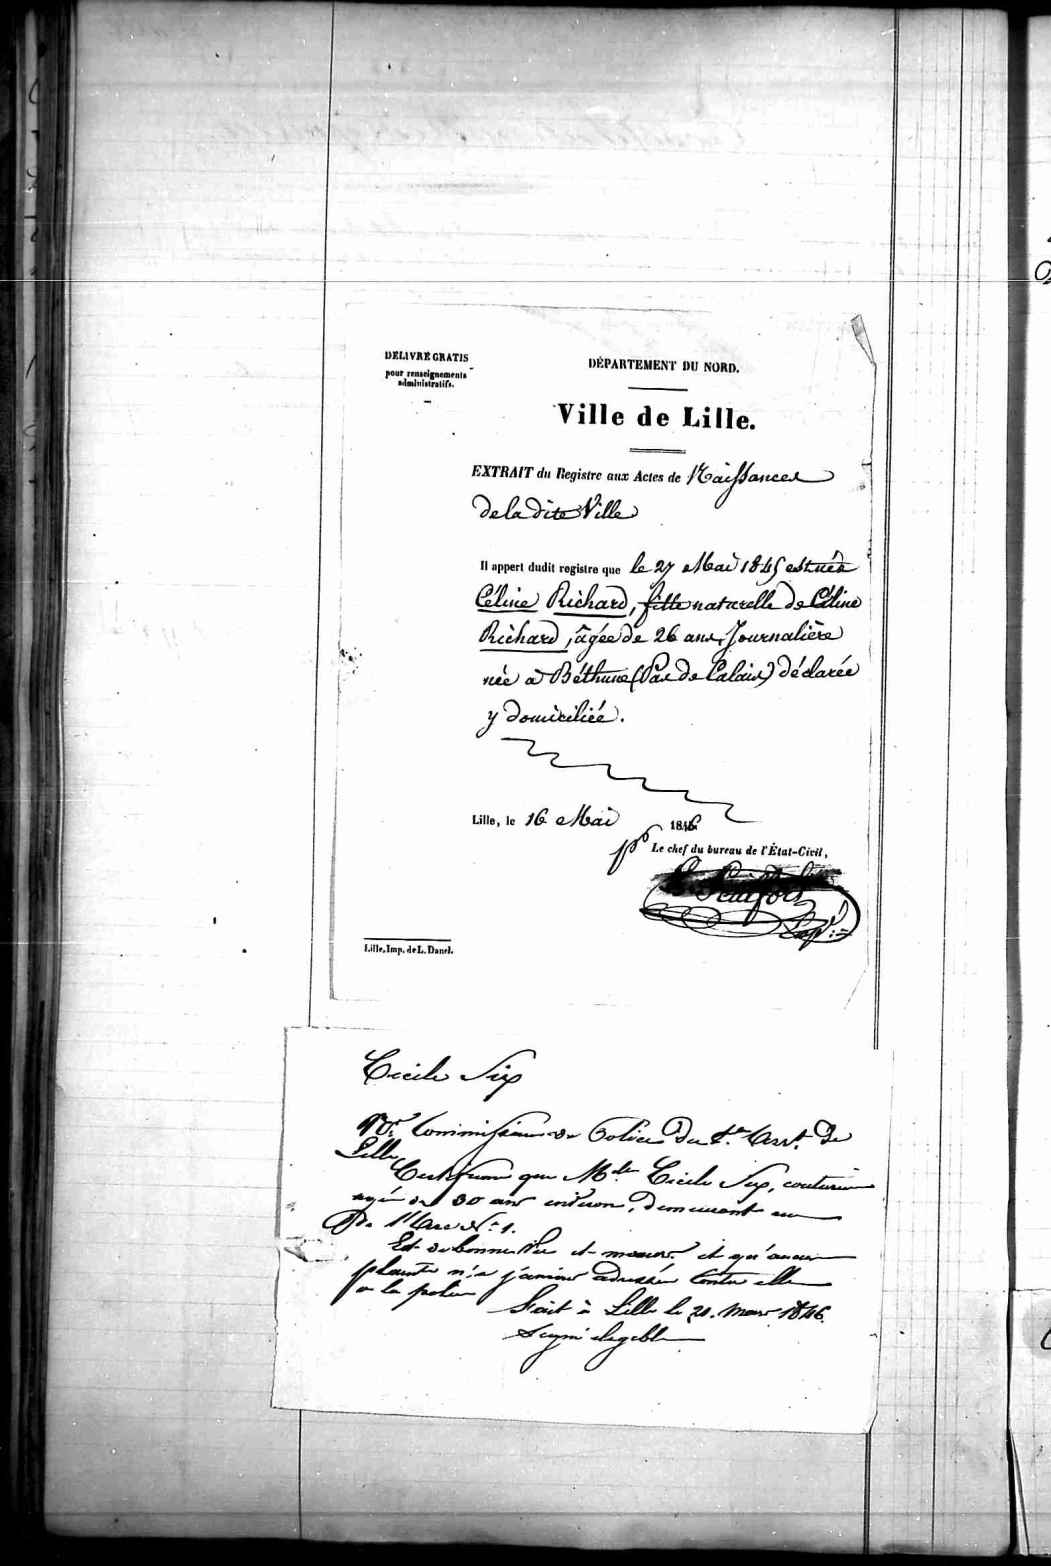 DÉLIVRÉ GRATIS
pour renseignements
administratifs.
DÉPARTEMENT DU NORD.
Ville de Lille.
EXTRAIT du Registre aux Actes de Naissances
de la dite Ville
Il appert dudit registre que le 27 Mai 1845 est née
Céline Richard, fille naturelle de Céline
Richard, âgée de 26 ans, Journalière
née à Béthune (Pas de Calais) déclarée
y domiciliée.
Lille, le 16 Mai 1846
Le chef du bureau de l'État-Civil,
Lille, Imp. de L. Danel.
Cecile Six
Commissaire de Police du Arrt. de
Lille
Certifions que Melle Cecile Six, couturière
agée de 30 ans environ, demeurant rue
No 1.
Est de bonne Vie et moeurs et qu'aucune
plainte n'a jamais adressée contre elle
a la police
Fait à Lille le 21 Mars 1846